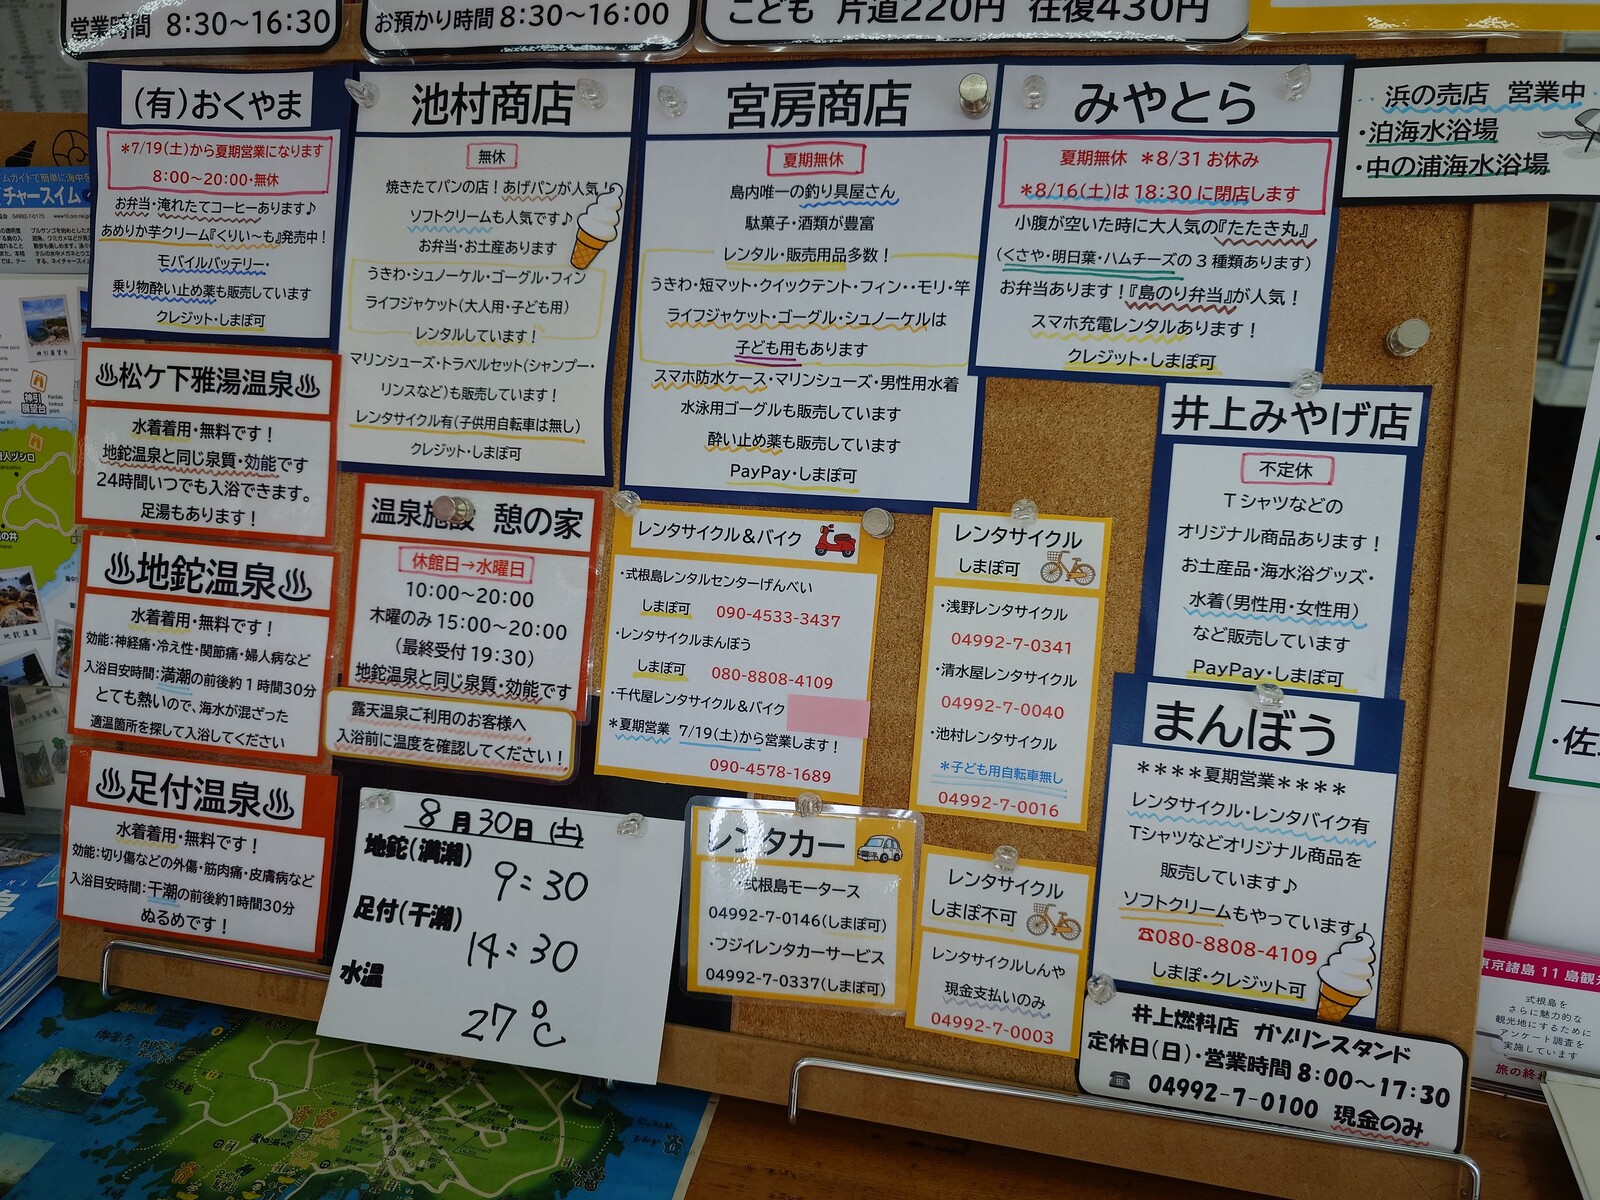 営業時間 8:30～16:30
お預かり時間 8:30～16:00
こども 片道220円 往復430円
(有)おくやま
＊7/19(土)から夏期営業になります
8:00～20:00・無休
お弁当・淹れたてコーヒーあります♪
あめりか芋クリーム『くりぃ～も』発売中！
モバイルバッテリー・
乗り物酔い止め薬も販売しています
クレジット・しまぽ可
池村商店
無休
焼きたてパンの店！あげパンが人気！
ソフトクリームも人気です♪
お弁当・お土産あります
うきわ・シュノーケル・ゴーグル・フィン
ライフジャケット(大人用・子ども用)
レンタルしています！
マリンシューズ・トラベルセット(シャンプー・
リンスなど)も販売しています！
レンタサイクル有(子供用自転車は無し)
クレジット・しまぽ可
宮房商店
夏期無休
島内唯一の釣り具屋さん
駄菓子・酒類が豊富
レンタル・販売用品多数！
うきわ・短マット・クイックテント・フィン・・モリ・竿
ライフジャケット・ゴーグル・シュノーケルは
子ども用もあります
スマホ防水ケース・マリンシューズ・男性用水着
水泳用ゴーグルも販売しています
酔い止め薬も販売しています
PayPay・しまぽ可
みやとら
夏期無休 ＊8/31 お休み
＊8/16(土)は 18:30 に閉店します
小腹が空いた時に大人気の『たたき丸』
(くさや・明日葉・ハムチーズの 3 種類あります)
お弁当あります！『島のり弁当』が人気！
スマホ充電レンタルあります！
クレジット・しまぽ可
浜の売店 営業中
・泊海水浴場
・中の浦海水浴場
松ケ下雅湯温泉
水着着用・無料です！
地鉈温泉と同じ泉質・効能です
24時間いつでも入浴できます。
足湯もあります！
地鉈温泉
水着着用・無料です！
効能:神経痛・冷え性・関節痛・婦人病など
入浴目安時間:満潮の前後約1時間30分
とても熱いので、海水が混ざった
適温箇所を探して入浴してください
足付温泉
水着着用・無料です！
効能:切り傷などの外傷・筋肉痛・皮膚病など
入浴目安時間:干潮の前後約1時間30分
ぬるめです！
温泉施設 憩の家
休館日→水曜日
10:00～20:00
木曜のみ 15:00～20:00
(最終受付 19:30)
地鉈温泉と同じ泉質・効能です
露天温泉ご利用のお客様へ
入浴前に温度を確認してください！
8月30日(土)
地鉈(満潮)
9:30
足付(干潮)
14:30
水温
27℃
レンタサイクル＆バイク
・式根島レンタルセンターげんべい
しまぽ可 090-4533-3437
・レンタサイクルまんぼう
しまぽ可 080-8808-4109
・千代屋レンタサイクル＆バイク
＊夏期営業 7/19(土)から営業します！
090-4578-1689
レンタサイクル
しまぽ可
・浅野レンタサイクル
04992-7-0341
・清水屋レンタサイクル
04992-7-0040
・池村レンタサイクル
＊子ども用自転車無し
04992-7-0016
レンタカー
・式根島モータース
04992-7-0146(しまぽ可)
・フジイレンタカーサービス
04992-7-0337(しまぽ可)
レンタサイクル
しまぽ不可
レンタサイクルしんや
現金支払いのみ
04992-7-0003
井上みやげ店
不定休
Tシャツなどの
オリジナル商品あります！
お土産品・海水浴グッズ・
水着(男性用・女性用)
など販売しています
PayPay・しまぽ可
まんぼう
＊＊＊＊夏期営業＊＊＊＊
レンタサイクル・レンタバイク有
Tシャツなどオリジナル商品を
販売しています♪
ソフトクリームもやっています♪
☎080-8808-4109
しまぽ・クレジット可
井上燃料店 ガソリンスタンド
定休日(日)・営業時間 8:00～17:30
☎ 04992-7-0100 現金のみ
東京諸島 11 島観
式根島を
さらに魅力的な
観光地にするために
アンケート調査を
実施しています
旅の終
・佐